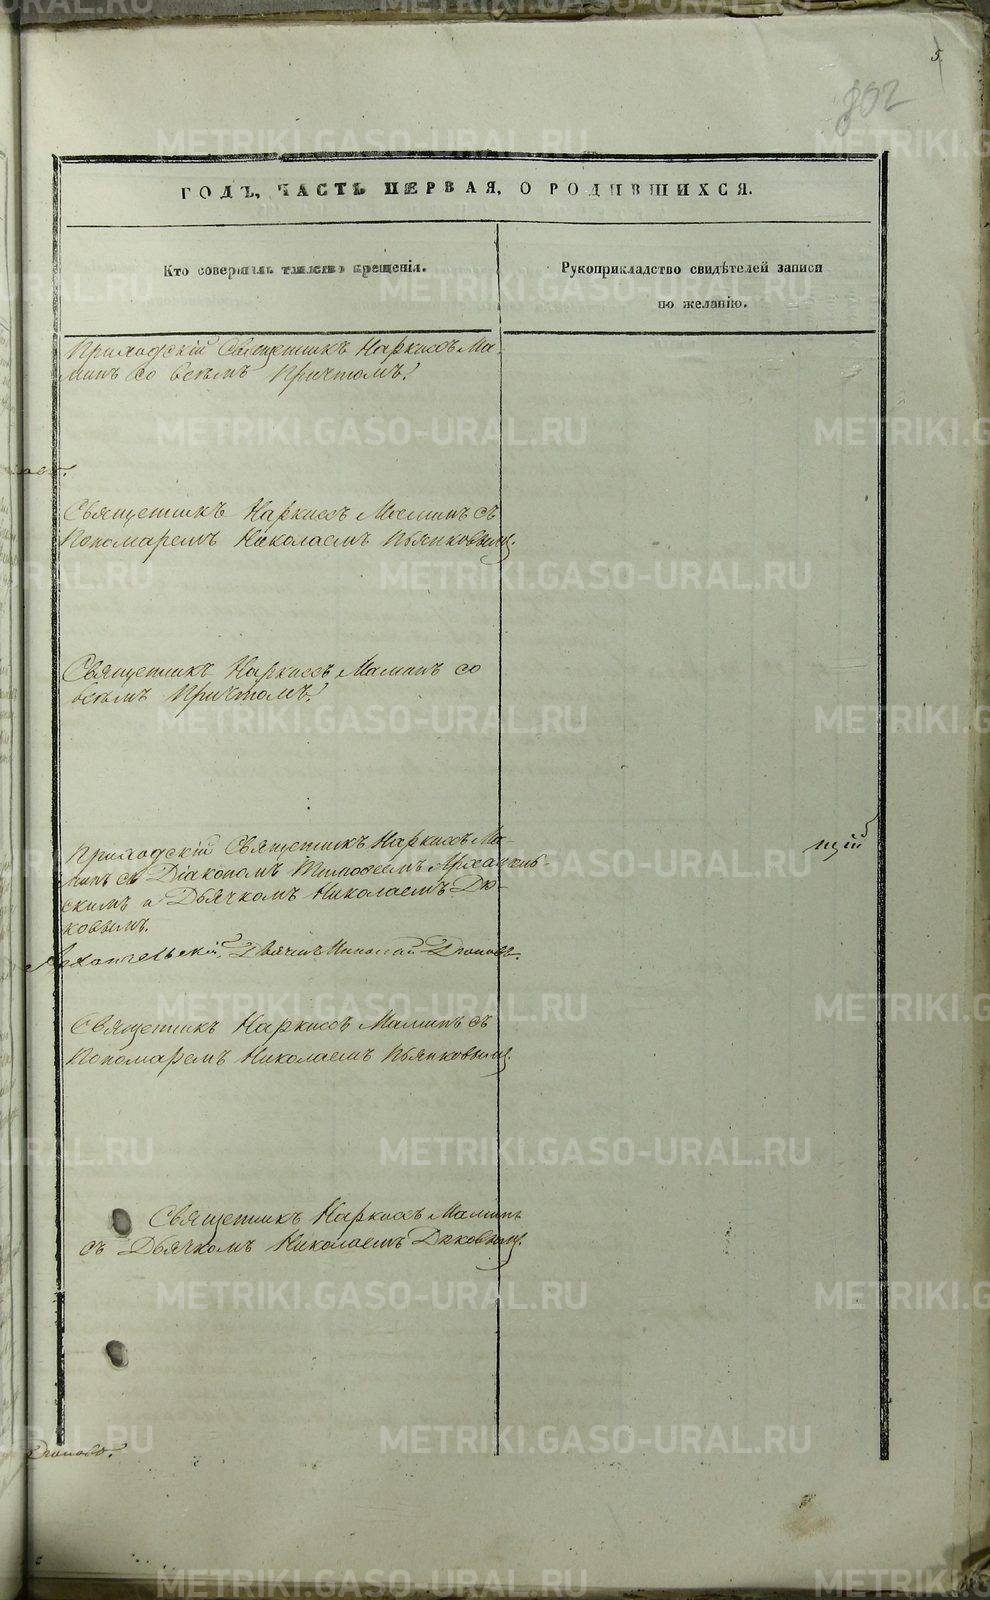 5.
802
ГОДЪ, ЧАСТЬ ПЕРВАЯ, О РОДИВШИХСЯ.
Кто совершалъ таинство крещенія.
Рукоприкладство свидѣтелей записи
по желанію.
Приходскій Священникъ Наркисъ Ма-
минъ со всѣмъ Причтомъ.
Священникъ Наркисъ Маминъ съ
Пономаремъ Николаемъ Пьянковымъ.
Священникъ Наркисъ Маминъ со
всѣмъ Причтомъ.
Приходскій Священникъ Наркисъ Ма-
минъ съ Діакономъ Тимоѳеемъ Архангель-
скимъ и Дьячкомъ Николаемъ Дю-
ковымъ.
щій
Архангельскій, Дьячекъ Николай Дюковъ.
Священникъ Наркисъ Маминъ съ
Пономаремъ Николаемъ Пьянковымъ.
Священникъ Наркисъ Маминъ
съ Дьячкомъ Николаемъ Дюковымъ.
Дюковъ.
METRIKI.GASO-URAL.RU